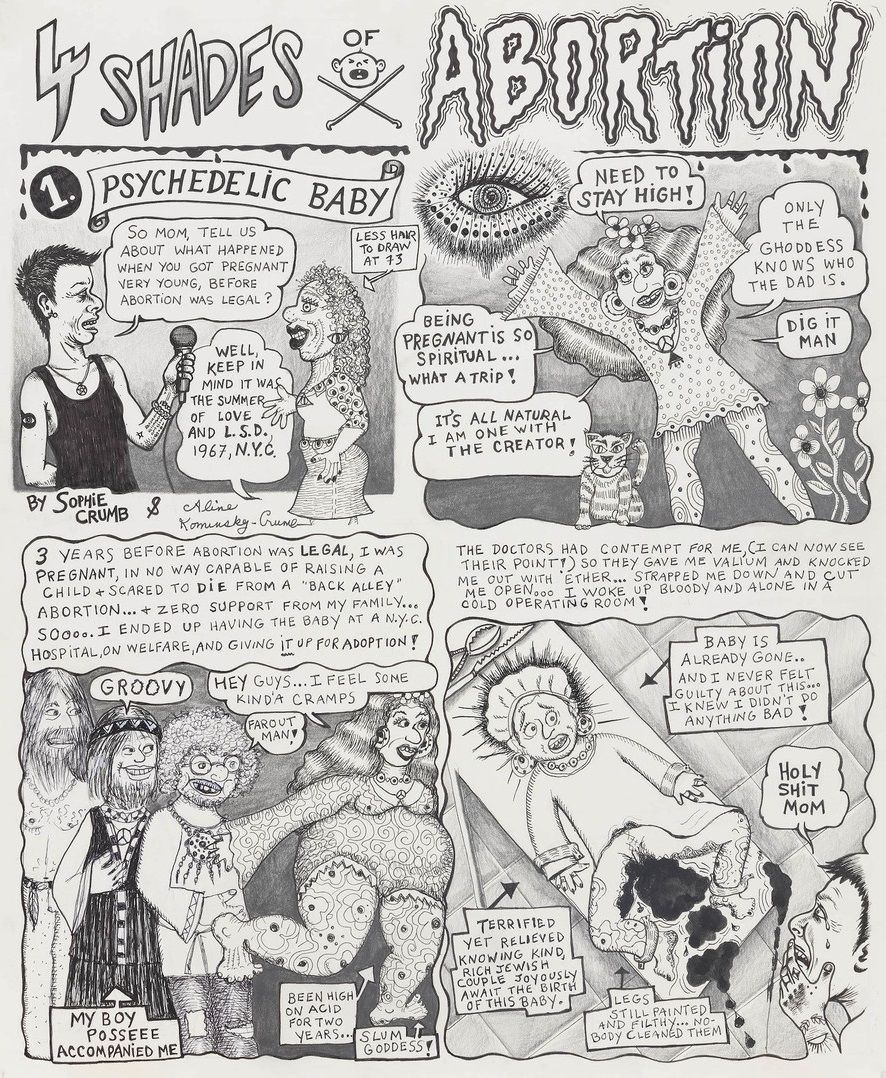 4 SHADES
OF
ABORTION
1.
PSYCHEDELIC BABY
SO MOM, TELL US
ABOUT WHAT HAPPENED
WHEN YOU GOT PREGNANT
VERY YOUNG, BEFORE
ABORTION WAS LEGAL?
LESS HAIR
TO DRAW
AT 73
WELL,
KEEP IN
MIND IT WAS
THE SUMMER
OF LOVE
AND L.S.D.,
1967, N.Y.C.
BY SOPHIE
CRUMB &
Aline
Kominsky-Crumb
NEED TO
STAY HIGH!
ONLY
THE
GHODDESS
KNOWS WHO
THE DAD IS.
BEING
PREGNANT IS SO
SPIRITUAL...
WHAT A TRIP!
DIG IT
MAN
IT'S ALL NATURAL
I AM ONE WITH
THE CREATOR!
3 YEARS BEFORE ABORTION WAS LEGAL, I WAS
PREGNANT, IN NO WAY CAPABLE OF RAISING A
CHILD + SCARED TO DIE FROM A "BACK ALLEY"
ABORTION... + ZERO SUPPORT FROM MY FAMILY...
SOOOO. I ENDED UP HAVING THE BABY AT A N.Y.C.
HOSPITAL, ON WELFARE, AND GIVING IT UP FOR ADOPTION!
GROOVY
HEY GUYS... I FEEL SOME
KIND'A CRAMPS
FAR OUT
MAN!
MY BOY
POSSEEE
ACCOMPANIED ME
BEEN HIGH
ON ACID
FOR TWO
YEARS...
SLUM
GODDESS!
THE DOCTORS HAD CONTEMPT FOR ME, (I CAN NOW SEE
THEIR POINT!) SO THEY GAVE ME VALIUM AND KNOCKED
ME OUT WITH ETHER... STRAPPED ME DOWN AND CUT
ME OPEN... I WOKE UP BLOODY AND ALONE IN A
COLD OPERATING ROOM!
BABY IS
ALREADY GONE..
AND I NEVER FELT
GUILTY ABOUT THIS...
I KNEW I DIDN'T DO
ANYTHING BAD!
HOLY
SHIT
MOM
TERRIFIED
YET RELIEVED
KNOWING KIND,
RICH JEWISH
COUPLE JOYOUSLY
AWAIT THE BIRTH
OF THIS BABY.
LEGS
STILL PAINTED
AND FILTHY... NO-
BODY CLEANED THEM